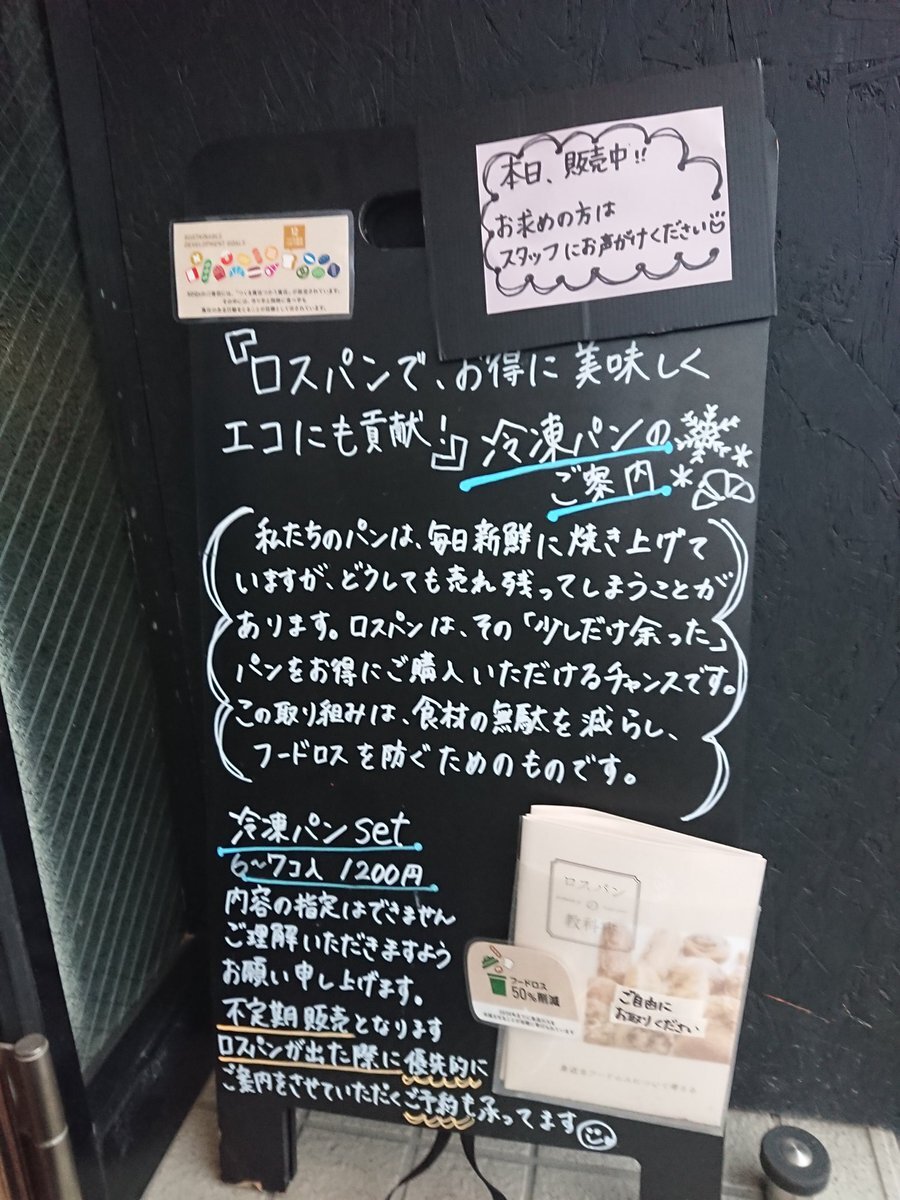 本日、販売中!!
お求めの方は
スタッフにお声がけください
SUSTAINABLE
DEVELOPMENT GOALS
12
『ロスパンで、お得に美味しく
エコにも貢献!』冷凍パンの
ご案内
私たちのパンは、毎日新鮮に焼き上げて
いますが、どうしても売れ残ってしまうことが
あります。ロスパンは、その「少しだけ余った」
パンをお得にご購入いただけるチャンスです。
この取り組みは、食材の無駄を減らし、
フードロスを防ぐためのものです。
冷凍パンset
6〜7コ入 1200円
内容の指定はできません
ご理解いただきますよう
お願い申し上げます。
不定期販売となります
ロスパンが出た際に優先的に
ご案内をさせていただくご予約も承ってます
ロスパン
の
教科書
フードロス
50%削減
ご自由に
お取りください